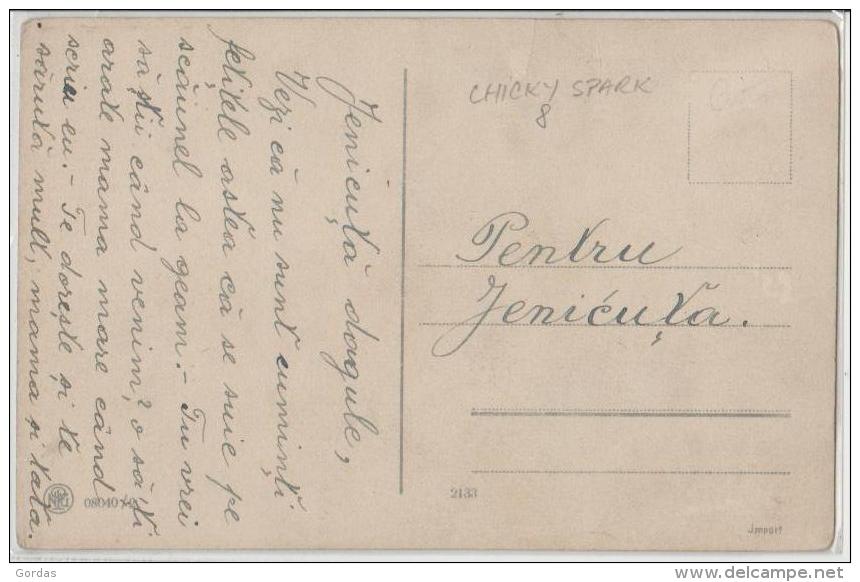 Jenicuță dogule,
Vezi că nu sunt cuminți
fetițele astea că se suie pe
scăunel la geam. – Tu vrei
să știi când venim? o să-ți
arate mama mare când
scriu eu. – Te dorește și te
sărută mult, mama și tata.
CHICKY SPARK
8
Pentru
Jenicuța.
2133
Import
Gordas
delcampe.net